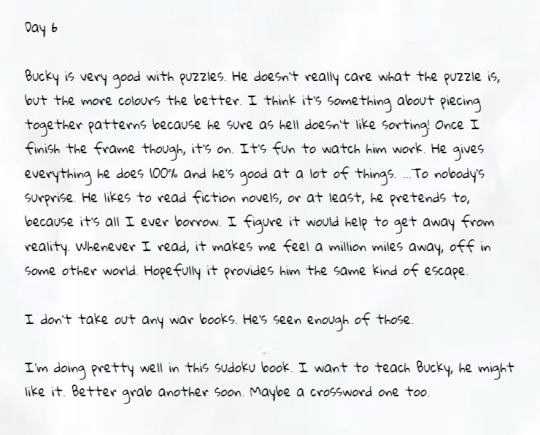 Day 6
Bucky is very good with puzzles. He doesn't really care what the puzzle is,
but the more colours the better. I think it's something about piecing
together patterns because he sure as hell doesn't like sorting! Once I
finish the frame though, it's on. It's fun to watch him work. He gives
everything he does 100% and he's good at a lot of things. ...To nobody's
surprise. He likes to read fiction novels, or at least, he pretends to,
because it's all I ever borrow. I figure it would help to get away from
reality. Whenever I read, it makes me feel a million miles away, off in
some other world. Hopefully it provides him the same kind of escape.
I don't take out any war books. He's seen enough of those.
I'm doing pretty well in this sudoku book. I want to teach Bucky, he might
like it. Better grab another soon. Maybe a crossword one too.